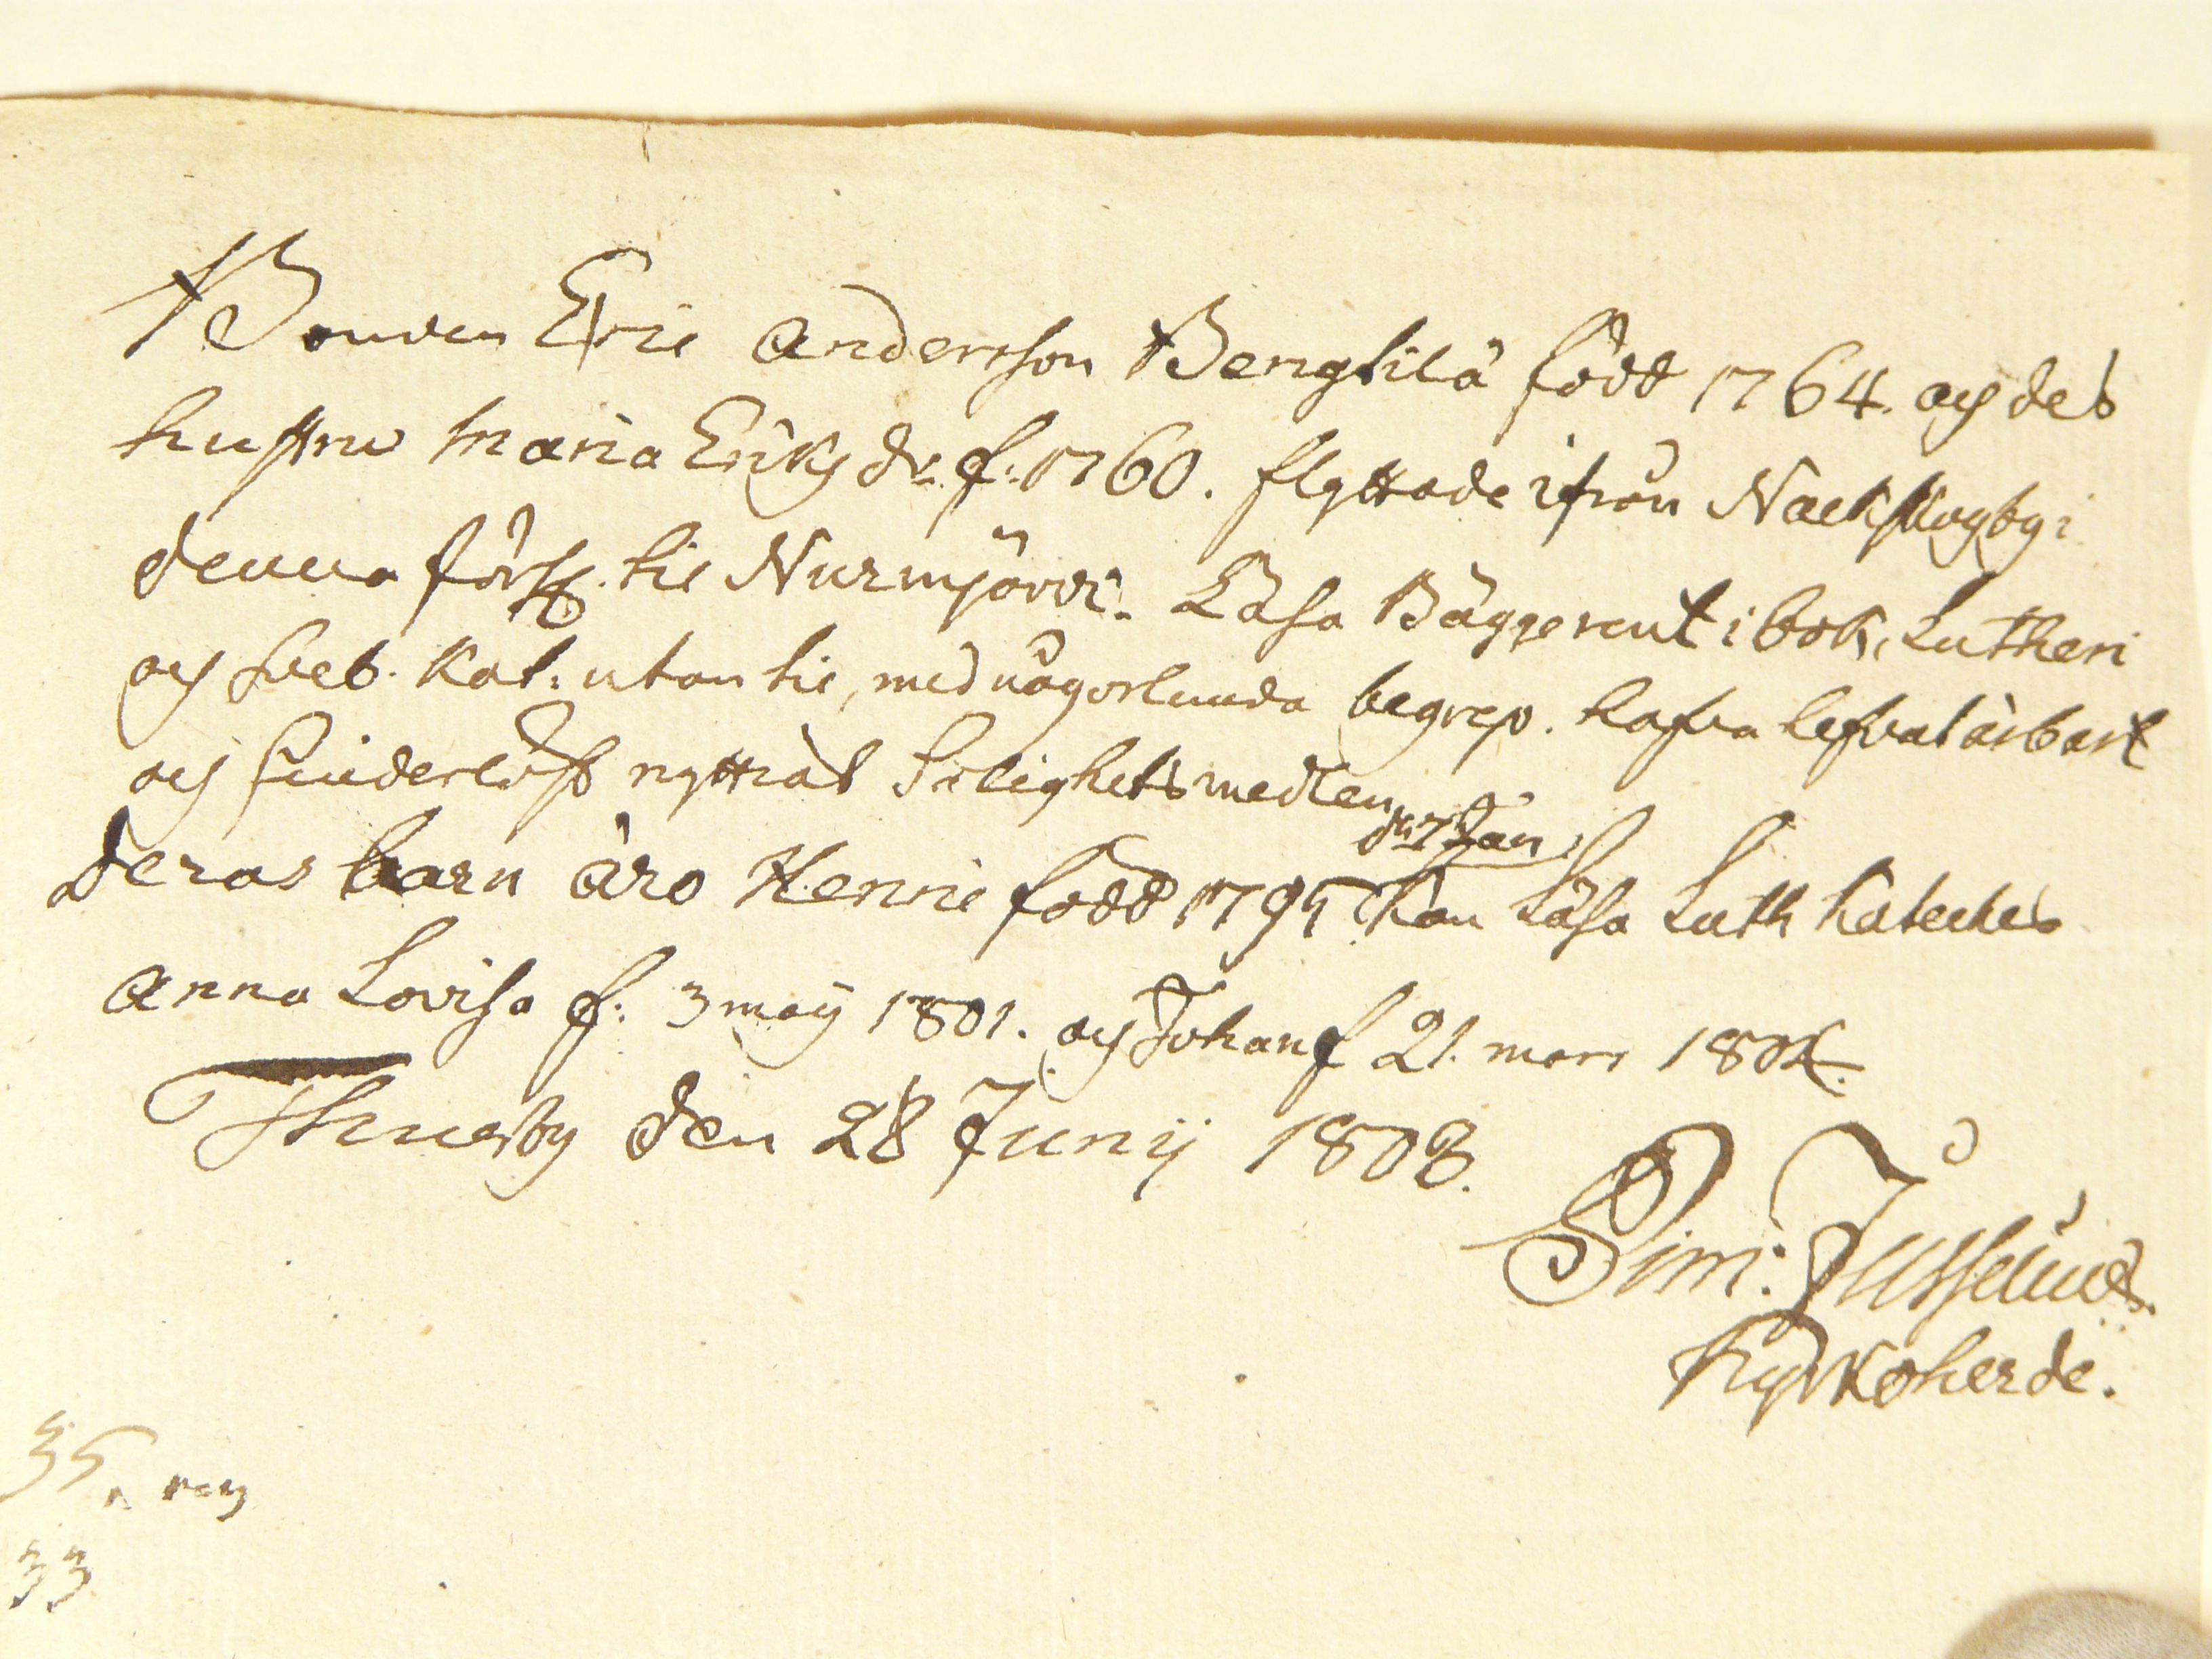 Bonden Eric Andersson Bengtilä född 1764. och des
hustru Maria Eriksdr. f: 1760. flyttade ifrån Nackskogby i
denna förs. til Nurmijärvi. Läsa Bägge rent i bok, Lutheri
och Sveb. Kat: utan til, med någorlunda begrep. hafva lefvat ärbart
och hinderlöst nyttiat Salighets medlen
d. 7 Jan
Deras barn äro Henric född 1795 kan läsa Luth Kateches
Anna Lovisa f: 3 maij 1801. och Johan f 21. mars 1804.
Thusby den 28 Junij 1808.
Sim: Jusselius
Kyrkoherde.
35
33